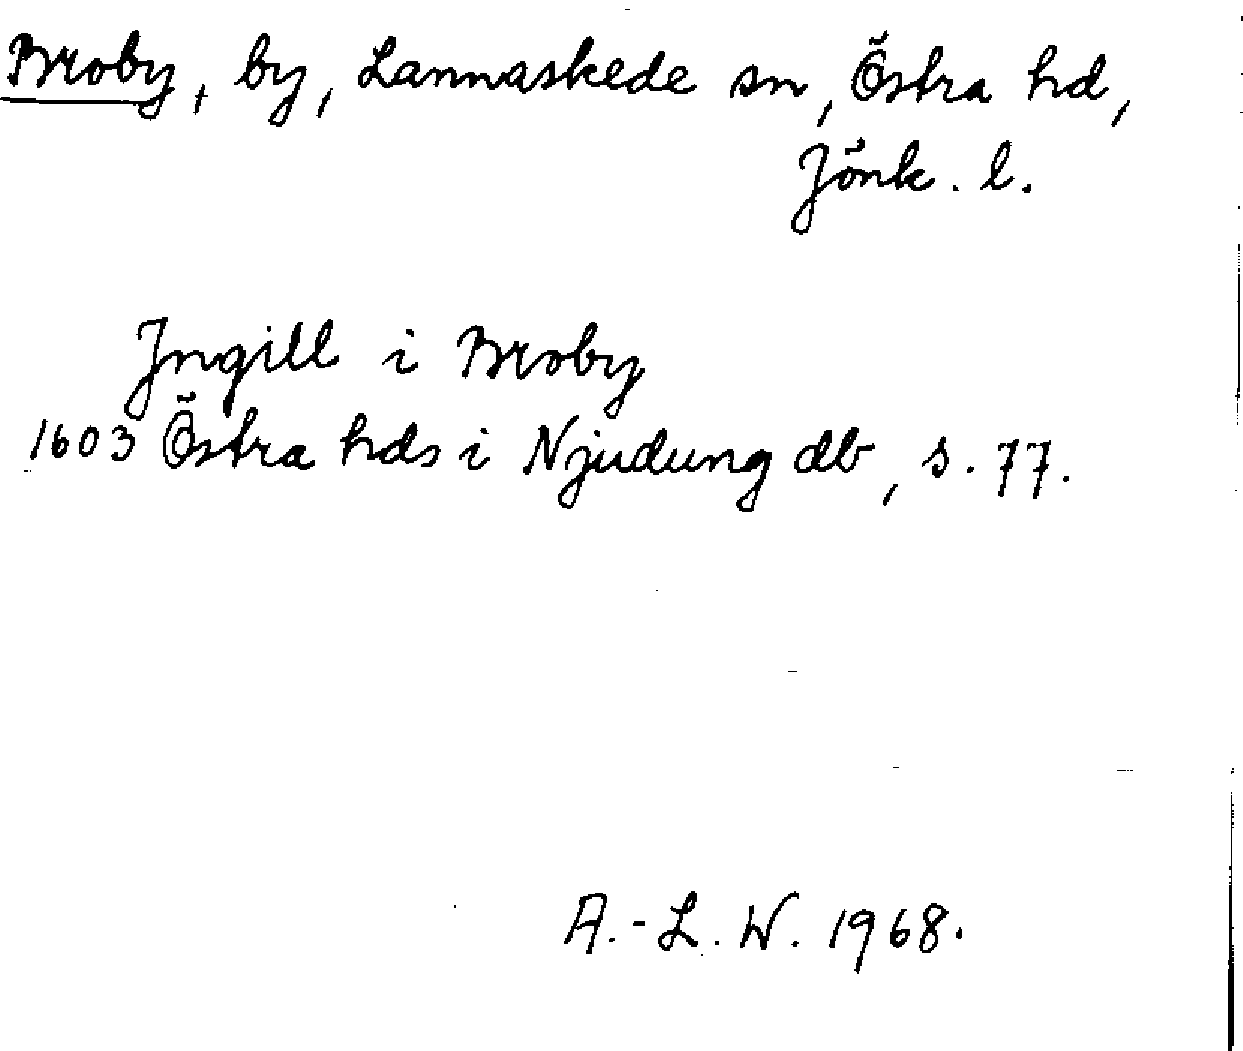 Broby, by, Lannaskede sn, Östra hd,
Jönk. l.
Ingill i Broby
1603 Östra hds i Njudung db, s. 77.
A.-L. W. 1968.